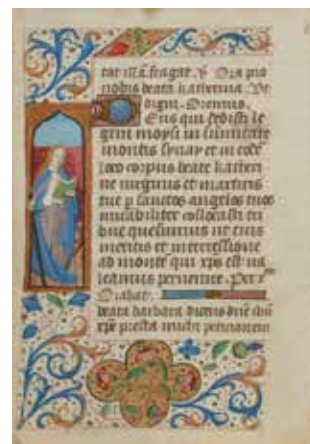 nobis beata katherina Ut
digni. Oremus.
Deus qui dedisti le
gem moysi in summitate
montis synay et in eodē
loco corpus beate katheri
ne virginis et martiris
tue p sanctos angelos tuos
mirabiliter collocasti tri
bue quesumus ut eius
meritis et intercessione
ad montē qui xp̄s est va
leamus pervenire. Per
beata barbara